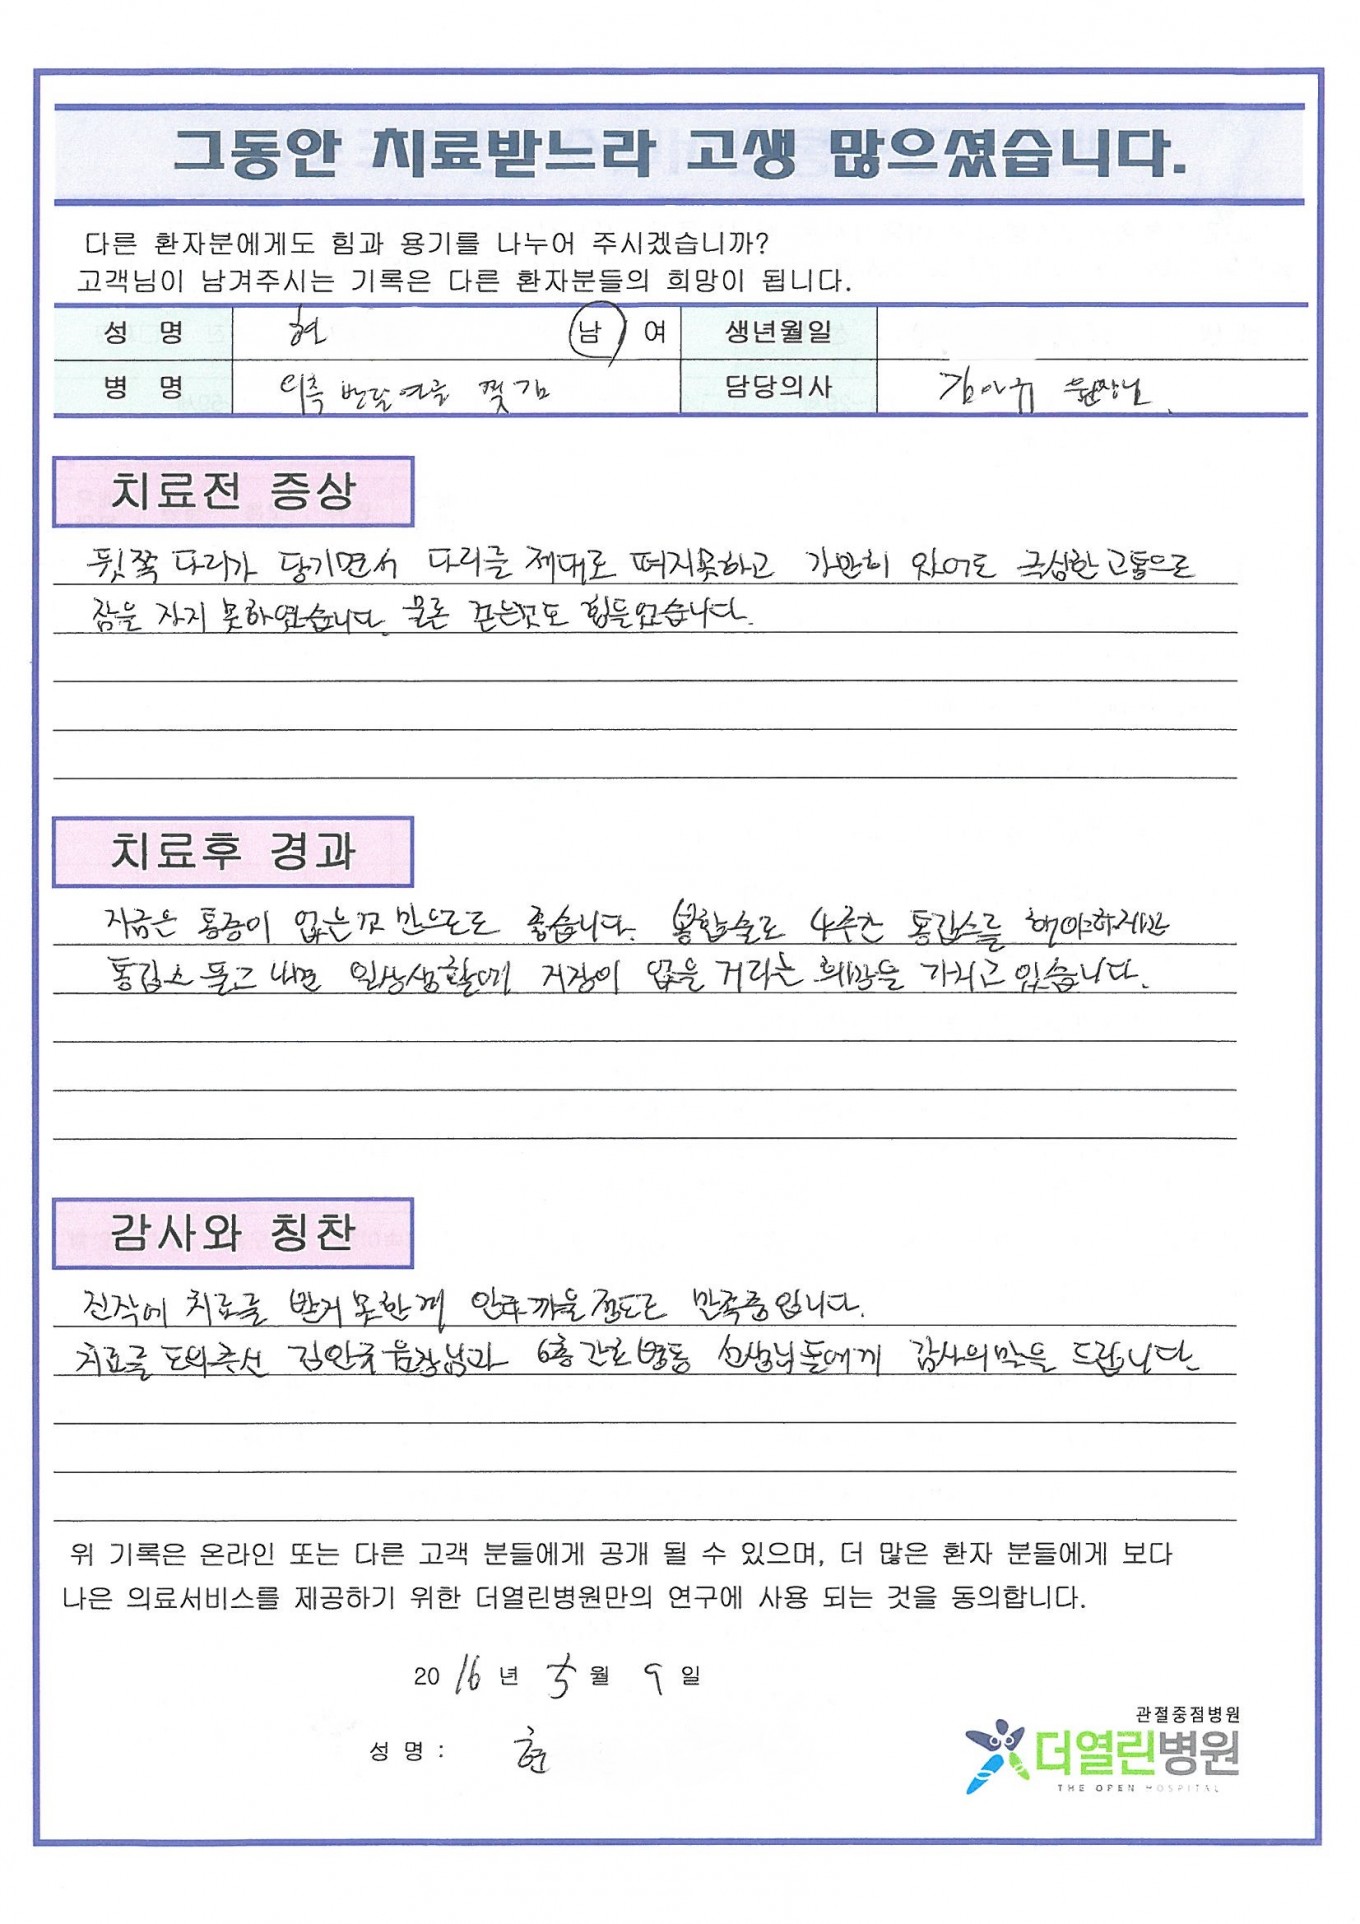 그동안 치료받느라 고생 많으셨습니다.
다른 환자분에게도 힘과 용기를 나누어 주시겠습니까?
고객님이 남겨주시는 기록은 다른 환자분들의 희망이 됩니다.
성 명 현 남 여 생년월일
병 명 외측 반달연골 찢김 담당의사 원장님.
치료전 증상
뒷쪽 다리가 당기면서 다리를 제대로 펴지못하고 가만히 있어도 극심한 고통으로
잠을 자지 못하였습니다. 물론 걷는것도 힘들었습니다.
치료후 경과
지금은 통증이 없는것 만으로도 좋습니다. 봉합술로 4주간 통깁스를 해야하지만
통깁스 풀고 나면 일상생활에 지장이 없을 거라는 희망을 가지고 있습니다.
감사와 칭찬
진작에 치료를 받지 못한게 안타까울 정도로 만족중입니다.
치료를 도와주신 원장님과 6층 간호병동 선생님들에게 감사의말을 드립니다
위 기록은 온라인 또는 다른 고객 분들에게 공개 될 수 있으며, 더 많은 환자 분들에게 보다
나은 의료서비스를 제공하기 위한 더열린병원만의 연구에 사용 되는 것을 동의합니다.
2016 년 5 월 9 일
성 명 : 현
관절중점병원
더열린병원
THE OPEN HOSPITAL